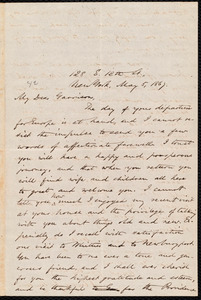 128 E. 16th St.
New York, May 5, 1867.
My Dear Garrison,
The day of your departure
for Europe is at hand, and I cannot re-
sist the impulse to send you a few
words of affectionate farewell. I trust
you will have a happy and prosperous
journey, and that when you return you
will find wife and children all here
to greet and welcome you. I cannot
tell you how much I enjoyed my recent visit
at your house and the privilege of talking
with you on things old and new. Es-
pecially do I recall with satisfaction
our visit to Whittier and to Newburyport.
You have been to me ever a true and gen-
erous friend, and I shall ever cherish
for you the highest gratitude and esteem,
and be thankful for the Providence